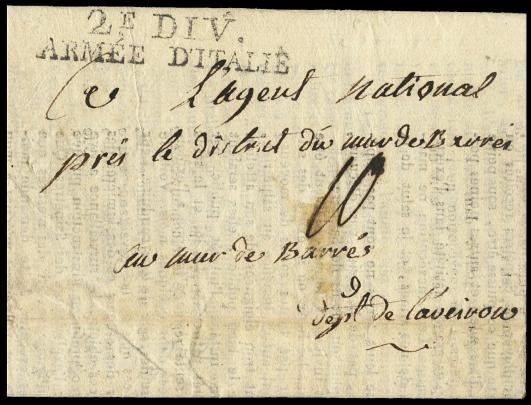 2.E DIV.
ARMÉE D'ITALIE
l'agent national
près le district du mur de Barrès
10
au mur de Barrés
dept de l'aveirou